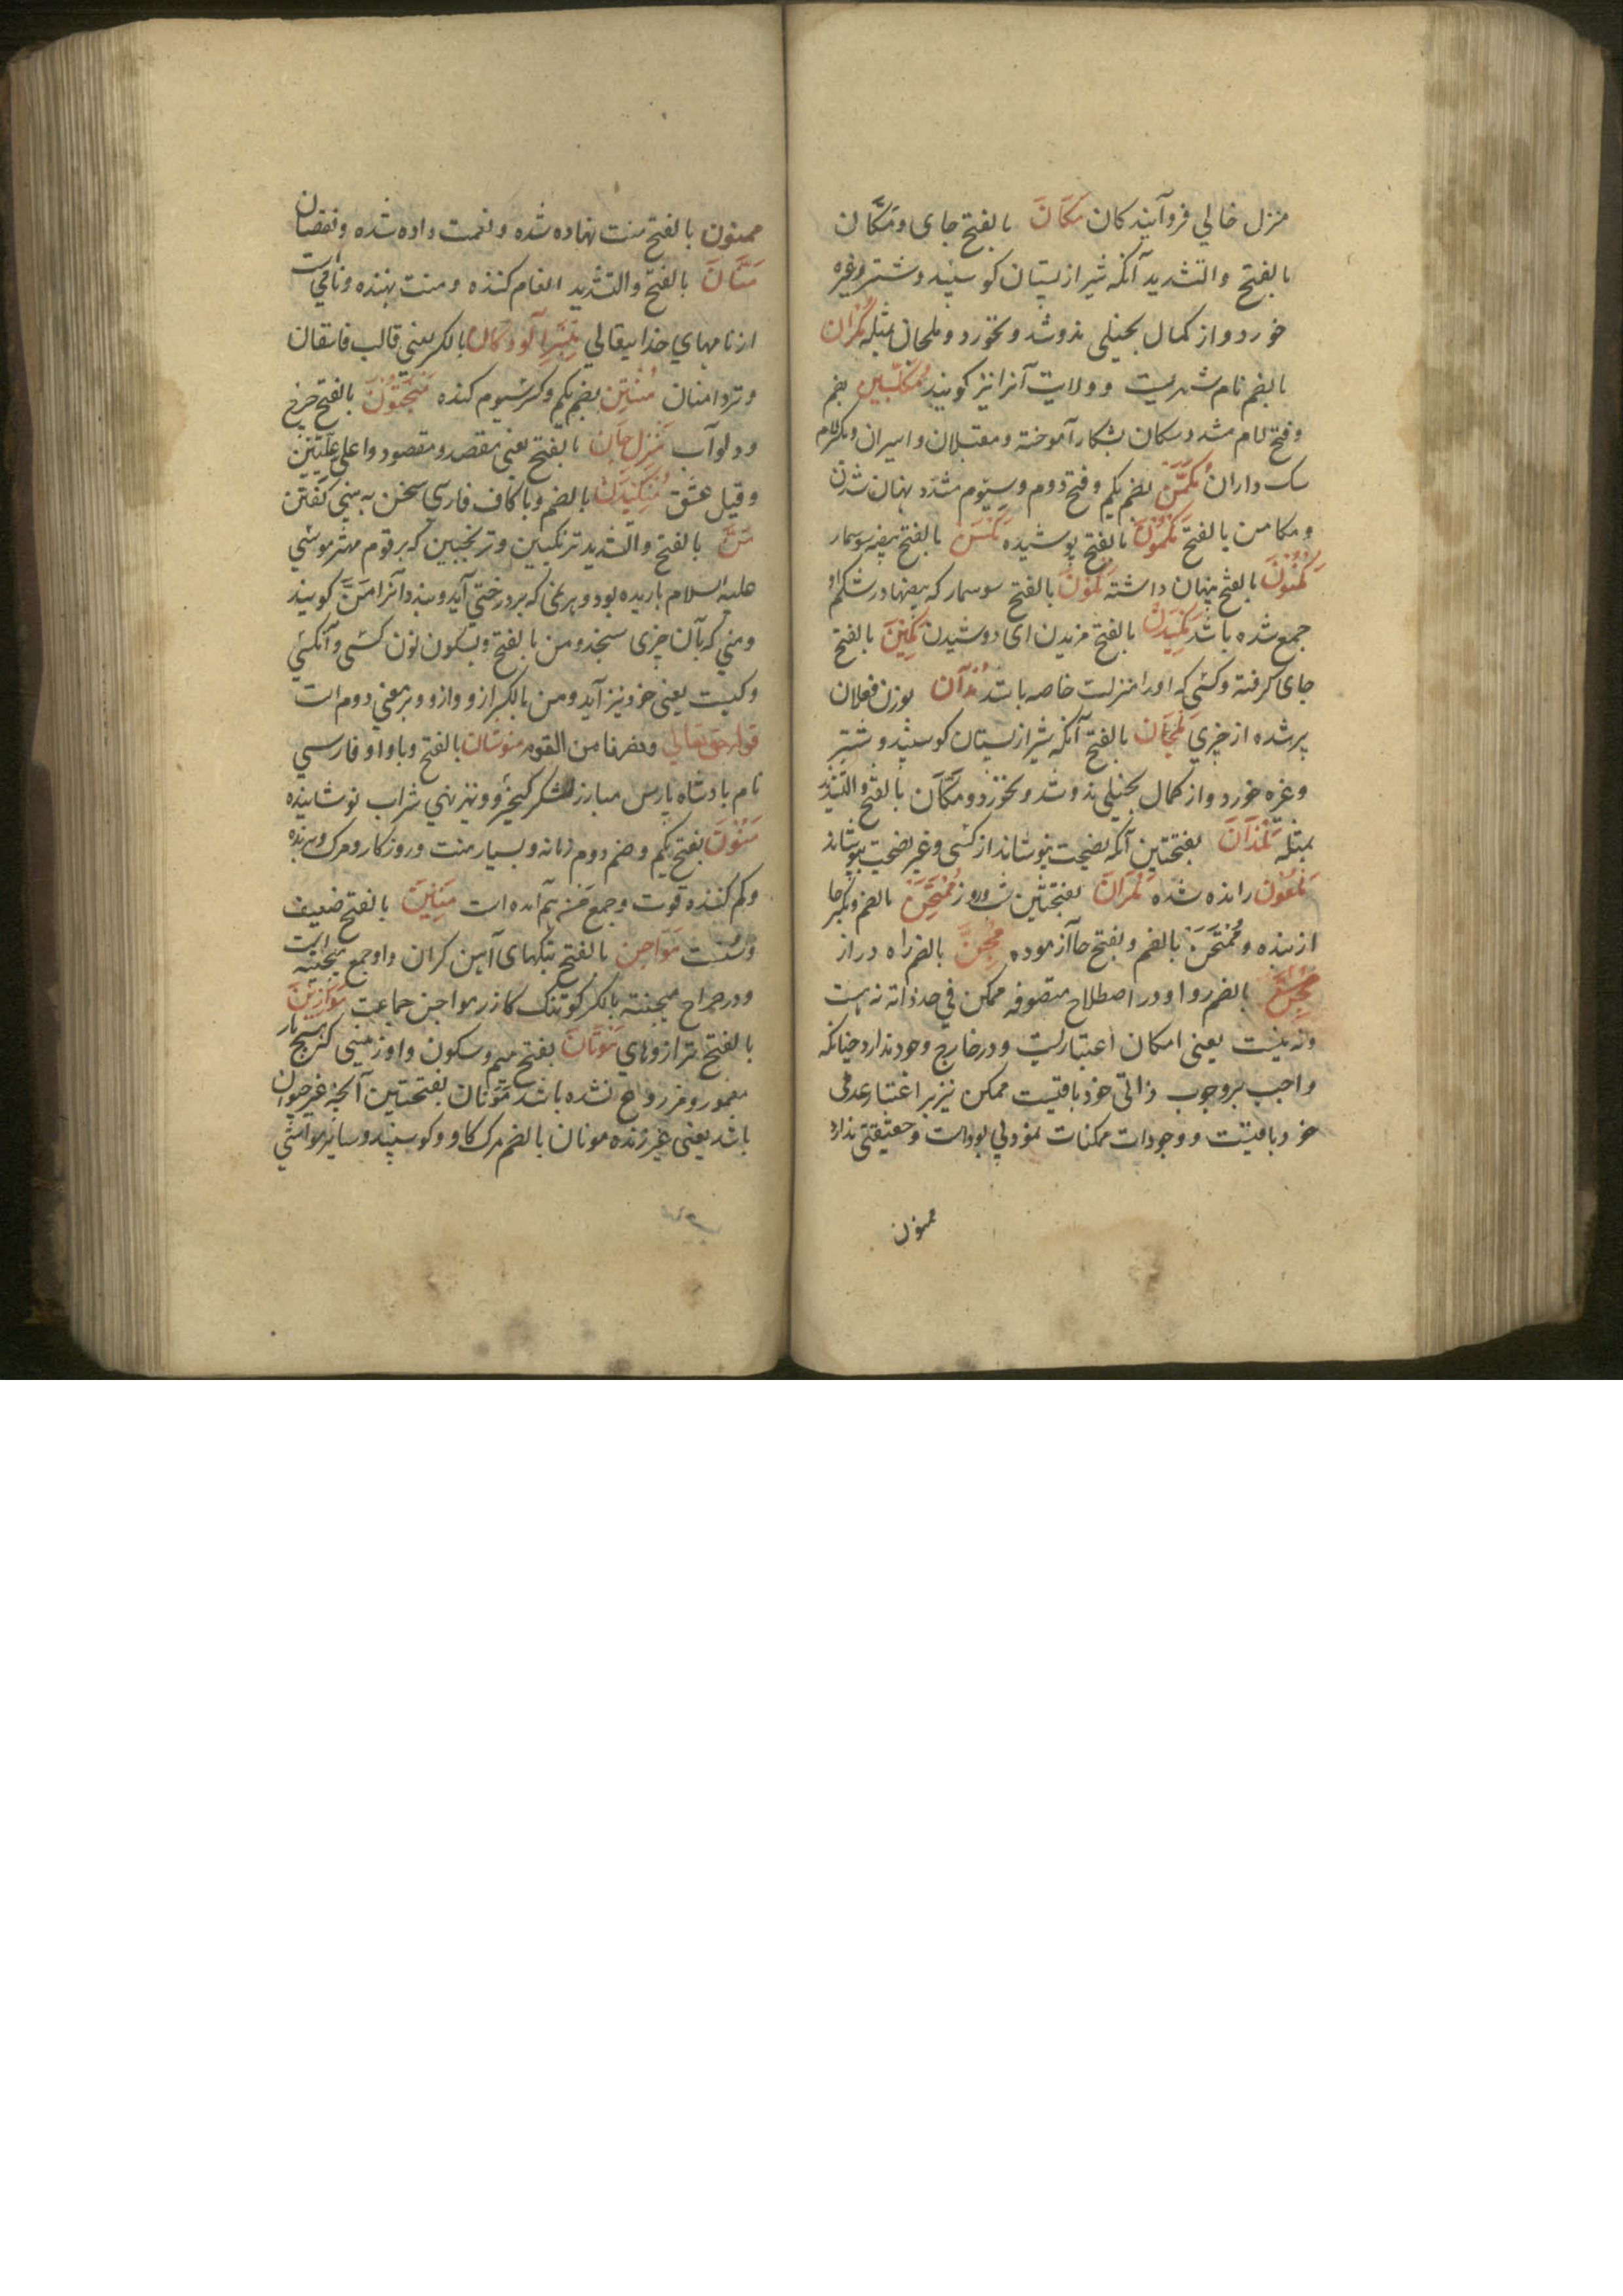 منزل خالي فروآیندکان مَکَانَ بالفتح جای ومَکَّان
بالفتح والتشدید آنکه شیر از پستان کوسپند وشتر وغیره
خورد واز کمال بخیلی ندوشد ونخورد وملحان بمثله مُکْرَان
بالضم نام شهریست وولایت آنرا نیز کویند مُکَلَّبِین بضم
وفتح لام مشدد سکان بشکار آموخته ومقبلان واسیران وبکسر لام
سک داران مُکَمَّنَ بضم یکم وفتح دوم وسیّوم مشدّد پنهان شدن
ومکامن بالفتح مَکْمُوْنَ بالفتح پوشیده مَکْنَ بالفتح بیضه سوسمار
مَکْنُوْنَ بالفتح پنهان داشته مَکُوْنَ بالفتح سوسمار که بیضها در شکم او
جمع شده باشد مَکِیْدَنْ بالفتح مزیدن ای دوشیدن مَکِیْنَ بالفتح
جای کرفته وکسی که او را منزلت خاصه باشد مُلْآن بوزن فعلان
پر شده از چیزي مَلْحَان بالفتح آنکه شیر از پستان کوسپند وشتر
وغیره خورد واز کمال بخیلی ندوشد ونخورد ومَکَّان بالفتح والتشدید
بمثله مَلَذَانَ بفتحتین آنکه نصیحت بنوشاند از کسی وغیر نصیحت بپوشاند
مَلْعُوْن رانده شده مَلَوَانَ بفتحتین شب وروز مُمْتَحِنَ بالضم وبکسر حا
آزماینده ومُمْتَحَنَ بالضم وبفتح حا آزموده بالضم راه دراز
بالضم روا ودر اصطلاح متصوفه ممکن في حد ذاته نه هست
ونه نیست یعنی امکان اعتباریست ودر خارج وجود ندارد چنانکه
واجب بر وجوب ذاتی خود باقیست ممکن نیز بر اعتبار عدمی
خود باقیست ووجودات ممکنات نمودي بوداست وحقیقتی ندارد
ممنون
ممنون بالفتح منت نهاده شده ونعمت داده شده ونقصان
مَنَّانَ بالفتح والتشدید انعام کننده ومنت نهنده ونامیست
از نامهاي خدایتعالي بالکسر یعنی قالب فاسقان
وتردامنان مُنْتِن بضم یکم وکسر سیوم کنده مَنْجَنُوْنَ بالفتح چرخ
ودلو آب مَنْزِل جَان بالفتح یعنی مقصد ومقصود واعلی علّیّین
وقیل عشق مُنْکِیْدَنْ بالضم وبا کاف فارسی سخن به بینی کفتن
مَنَّ بالفتح والتشدید ترنکبین وترنجبین که بر قوم مهتر موسی
علیه السلام باریده بود وهر نمی که بر درختی آید وبندد آنرا مَنَّ کویند
ومنی که بآن چیزی سنجد ومن بالفتح وبسکون نون کسی وآنکسی
وکیست یعنی خود نیز آید ومن بالکسر از وازو وبر معنی دوم است
قوله حق تعالي ونصرنا من القوم منوشان بالفتح وبا واو فارسي
نام بادشاه پارس مبارز لشکر کیخسرو ونیز نهی شراب نوشاینده
مَنُوْنَ بفتح یکم وضم دوم زمانه وبسیار منت وروزکار ومرک وبرنده
وکم کننده قوت وجمع من هم آمده است مَنِیْنَ بالفتح ضعیف
وسست مَوَاجِن بالفتح پتکهای آهن کران واو جمع میجنه است
ودر صراح میجنة بالکسر کوتنک کازر مواجن جماعت مَوَازِیْنَ
بالفتح ترازوهاي مَوْتَانَ بفتح میم وسکون واو زمینی که هیچ بار
معمور ومزروع نشده باشد مَوَتَان بفتحتین آنچه غیر حیوان
باشد یعنی غیر زنده موتان بالضم مرک کاو وکوسپند وسایر مواشي